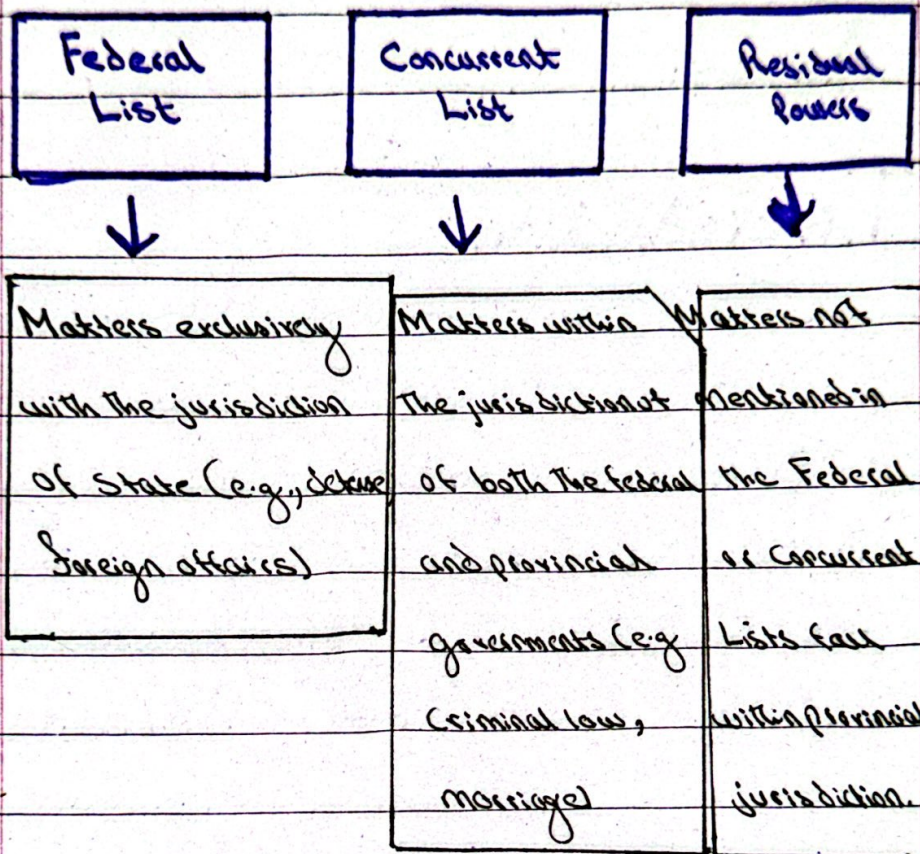 Federal
List
Concurrent
List
Residual
Powers
Matters exclusively
with the jurisdiction
of State (e.g., defense
foreign affairs)
Matters within
the jurisdiction of
of both the federal
and provincial
governments (e.g
Criminal law,
marriage)
Matters not
mentioned in
the Federal
or Concurrent
Lists fall
within provincial
jurisdiction.